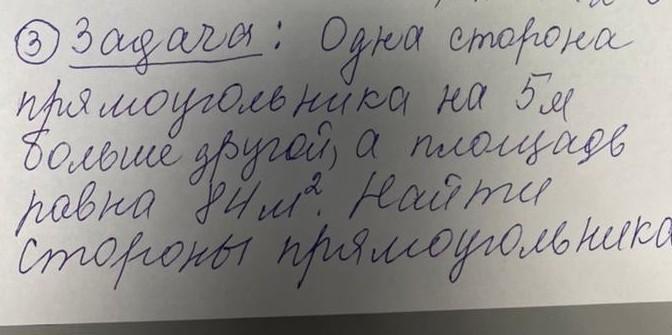 ③ Задача: Одна сторона
прямоугольника на 5м
больше другой, а площадь
равна 84м². Найти
стороны прямоугольника